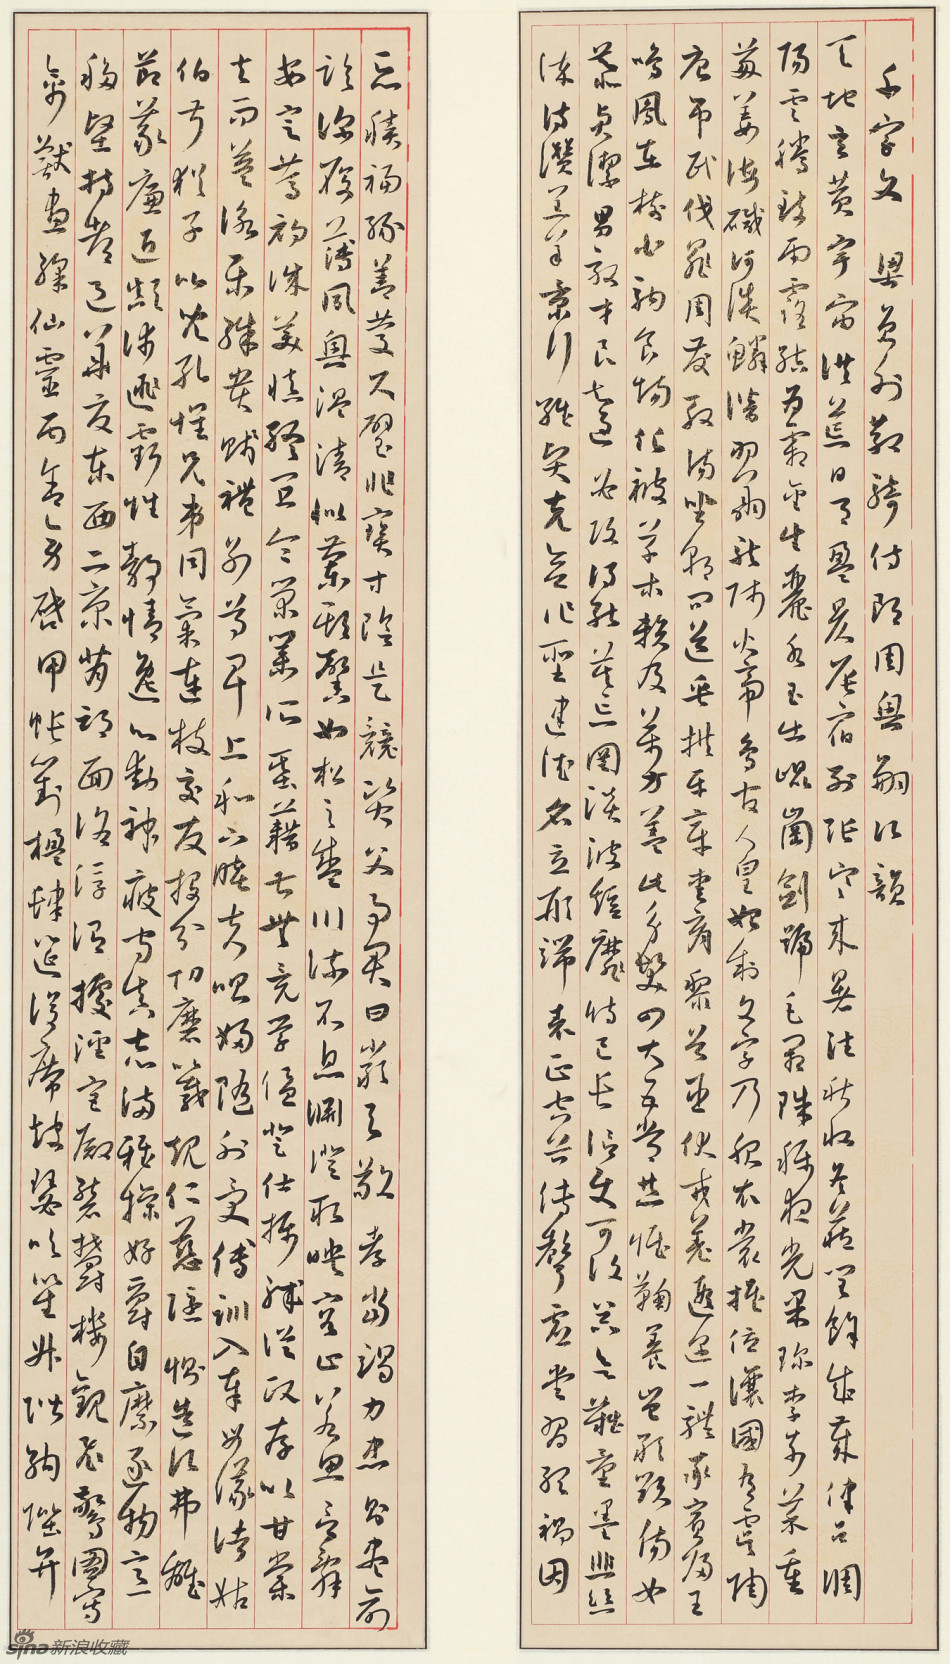 千字文 梁員外散騎侍郎周興嗣次韻
天地玄黃宇宙洪荒日月盈昃辰宿列張寒來暑往秋收冬藏閏餘成歲律呂調
陽雲騰致雨露結為霜金生麗水玉出崐崗劍號巨闕珠稱夜光果珍李柰菜重
芥薑海鹹河淡鱗潛羽翔龍師火帝鳥官人皇始制文字乃服衣裳推位讓國有虞陶
唐弔民伐罪周發殷湯坐朝問道垂拱平章愛育黎首臣伏戎羌遐邇一體率賓歸王
鳴鳳在樹白駒食場化被草木賴及萬方蓋此身髮四大五常恭惟鞠養豈敢毀傷女
慕貞潔男效才良知過必改得能莫忘罔談彼短靡恃己長信使可覆器欲難量墨悲絲
染詩讚羔羊景行維賢克念作聖建德名立形端表正空谷傳聲虛堂習聽禍因
惡積福緣善慶尺璧非寶寸陰是競資父事君曰嚴與敬孝當竭力忠則盡命
臨深履薄夙興溫清似蘭斯馨如松之盛川流不息淵澄取映容止若思言辭
安定篤初誠美慎終宜令榮業所基藉甚無竟學優登仕攝職從政存以甘棠
去而益詠樂殊貴賤禮別尊卑上和下睦夫唱婦隨外受傅訓入奉母儀諸姑
伯叔猶子比兒孔懷兄弟同氣連枝交友投分切磨箴規仁慈隱惻造次弗離
節義廉退顛沛匪虧性靜情逸心動神疲守真志滿雅操好爵自縻逐物意
移堅持都邑華夏東西二京背邙面洛浮渭據涇宮殿盤鬱樓觀飛驚圖寫
禽獸畫綵仙靈丙舍傍啟甲帳對楹肆筵設席鼓瑟吹笙升階納陛弁
sina新浪收藏